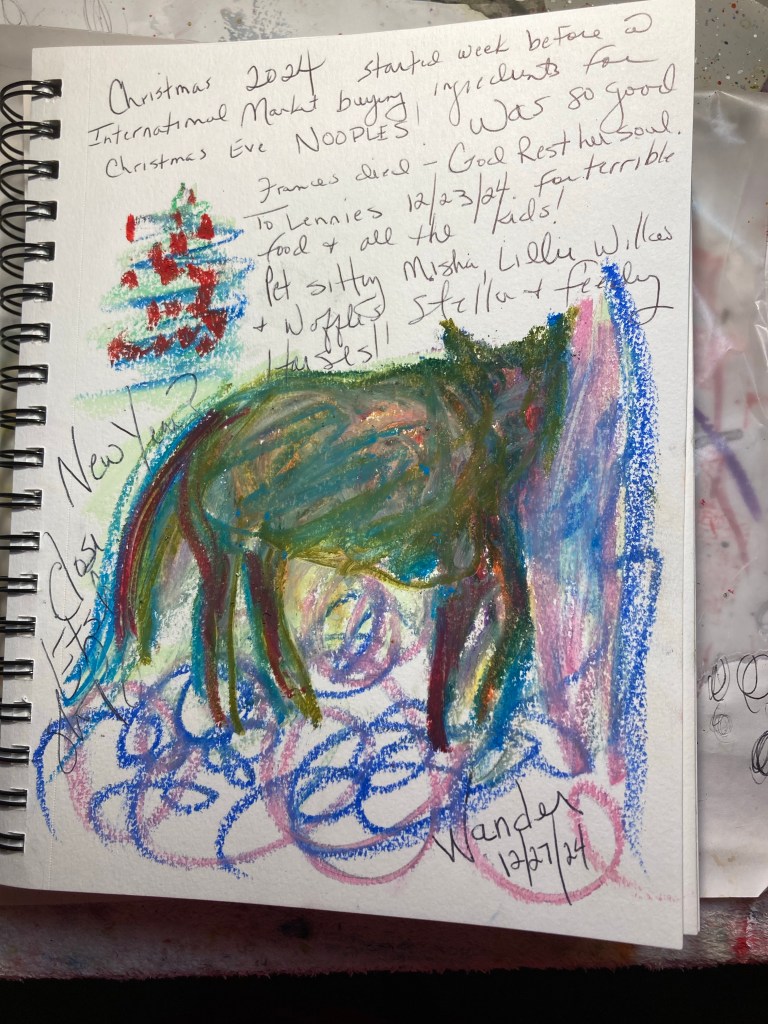 Christmas 2024 started week before @
International Market buying ingredients for
Christmas Eve NOOPLES! Was so good
Frances died - God Rest her soul.
To Lennies 12/23/24. For terrible
food & all the kids!
Pet sitting Misha, Lillie Willow
& Waffles Stella & feeding
Horses!!
New Year?
Close
Wander
12/27/24